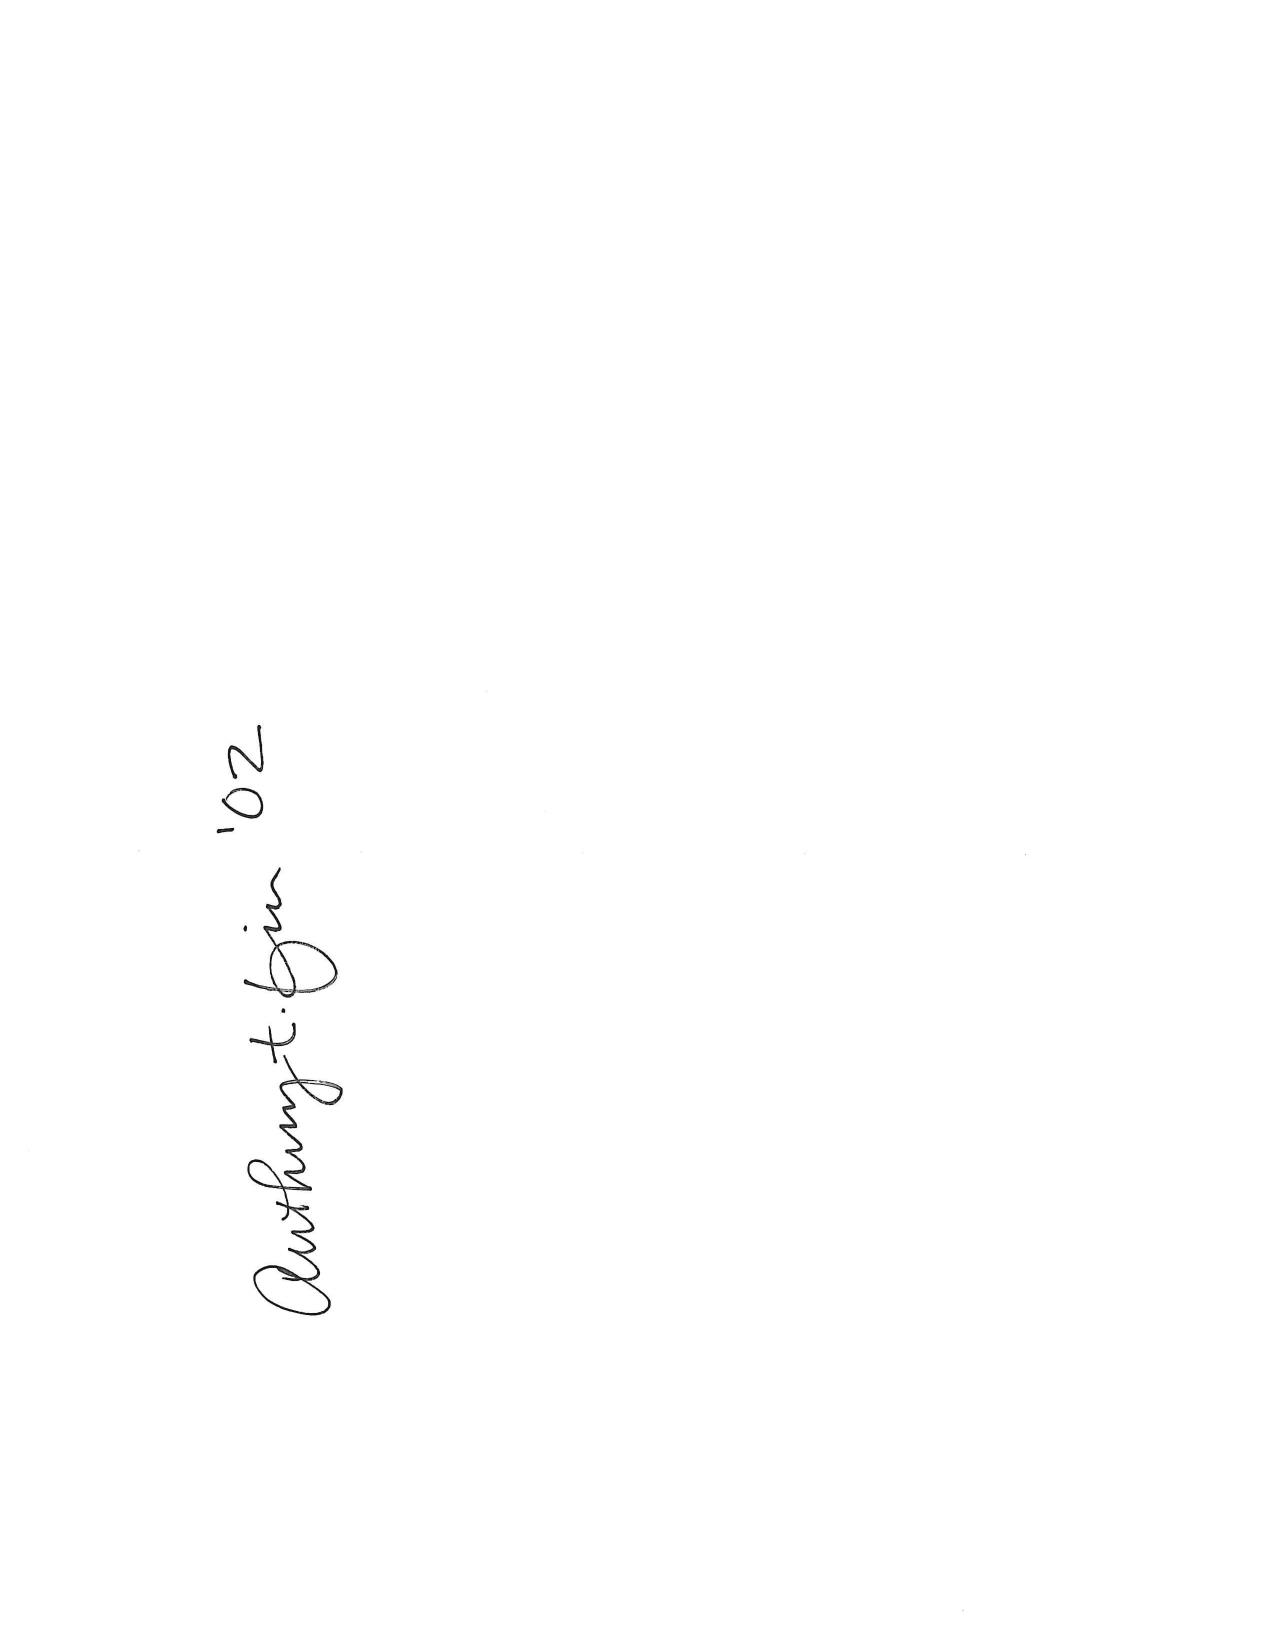 Anthony t. Jin '02